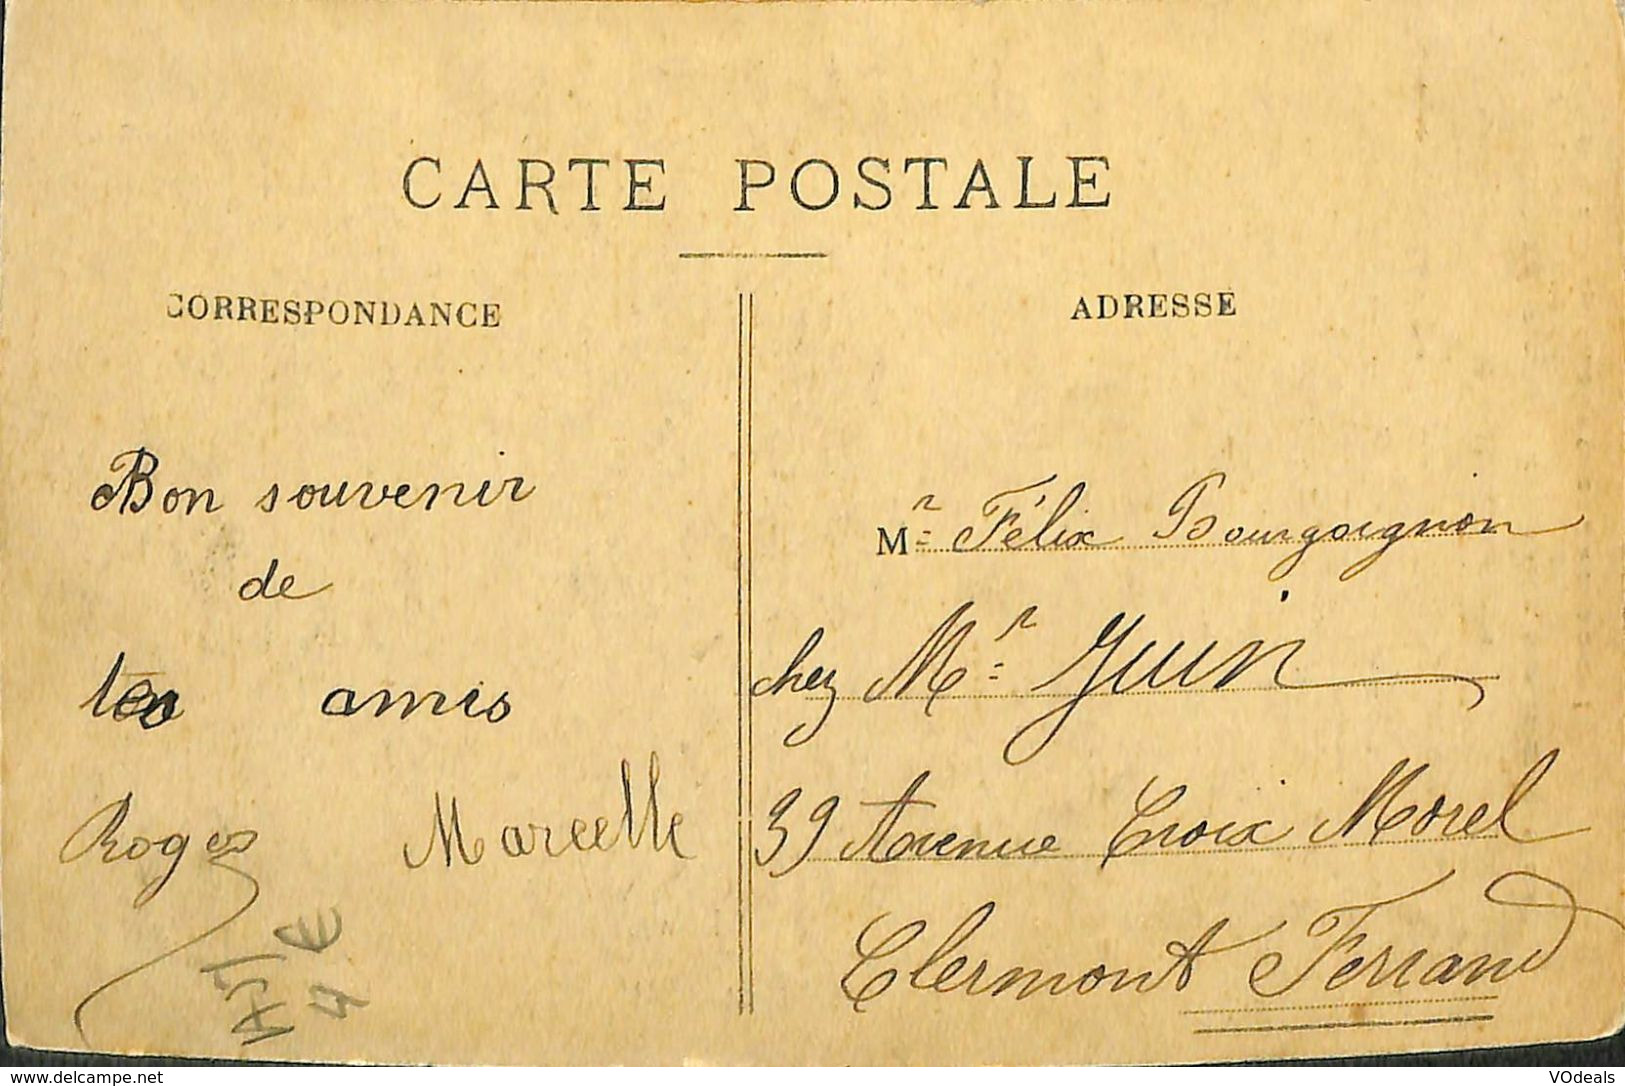 CARTE POSTALE
CORRESPONDANCE
Bon souvenir
de
tes amis
Roger Marcelle
ADRESSE
Mr Félix Bourgoignon
chez Mr Juin
39 Avenue Croix Morel
Clermont Ferrand
www.delcampe.net
VOdeals